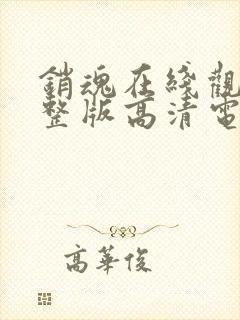 銷魂在綫觀
整版高清電
高華俊